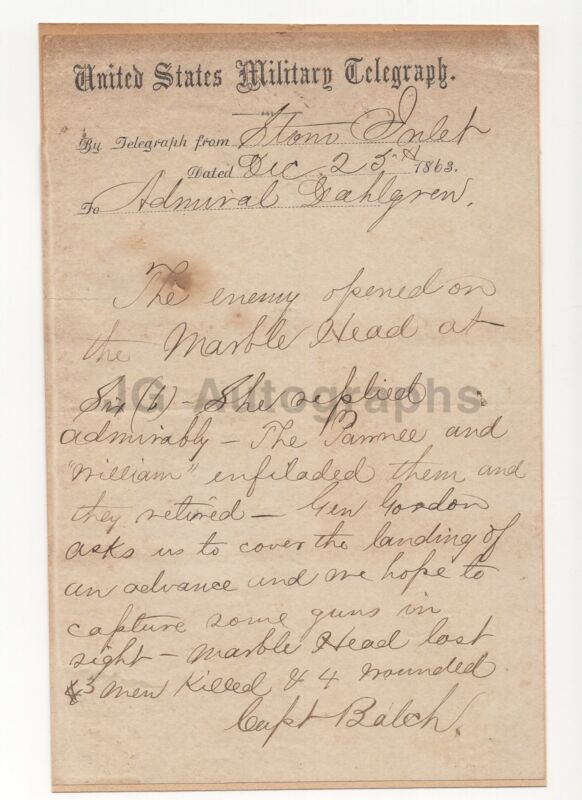 United States Military Telegraph.
By Telegraph from Stono Inlet
Dated Dec 25th 1863.
To Admiral Dahlgren.
The enemy opened on
the Marble Head at
Six (6) - She replied
JG Autographs
admirably - The Pawnee and
"William" enfiladed them and
they retired - Gen Gordon
asks us to cover the landing of
an advance and we hope to
capture some guns in
sight - Marble Head lost
3 men Killed & 4 wounded
Capt Balch.